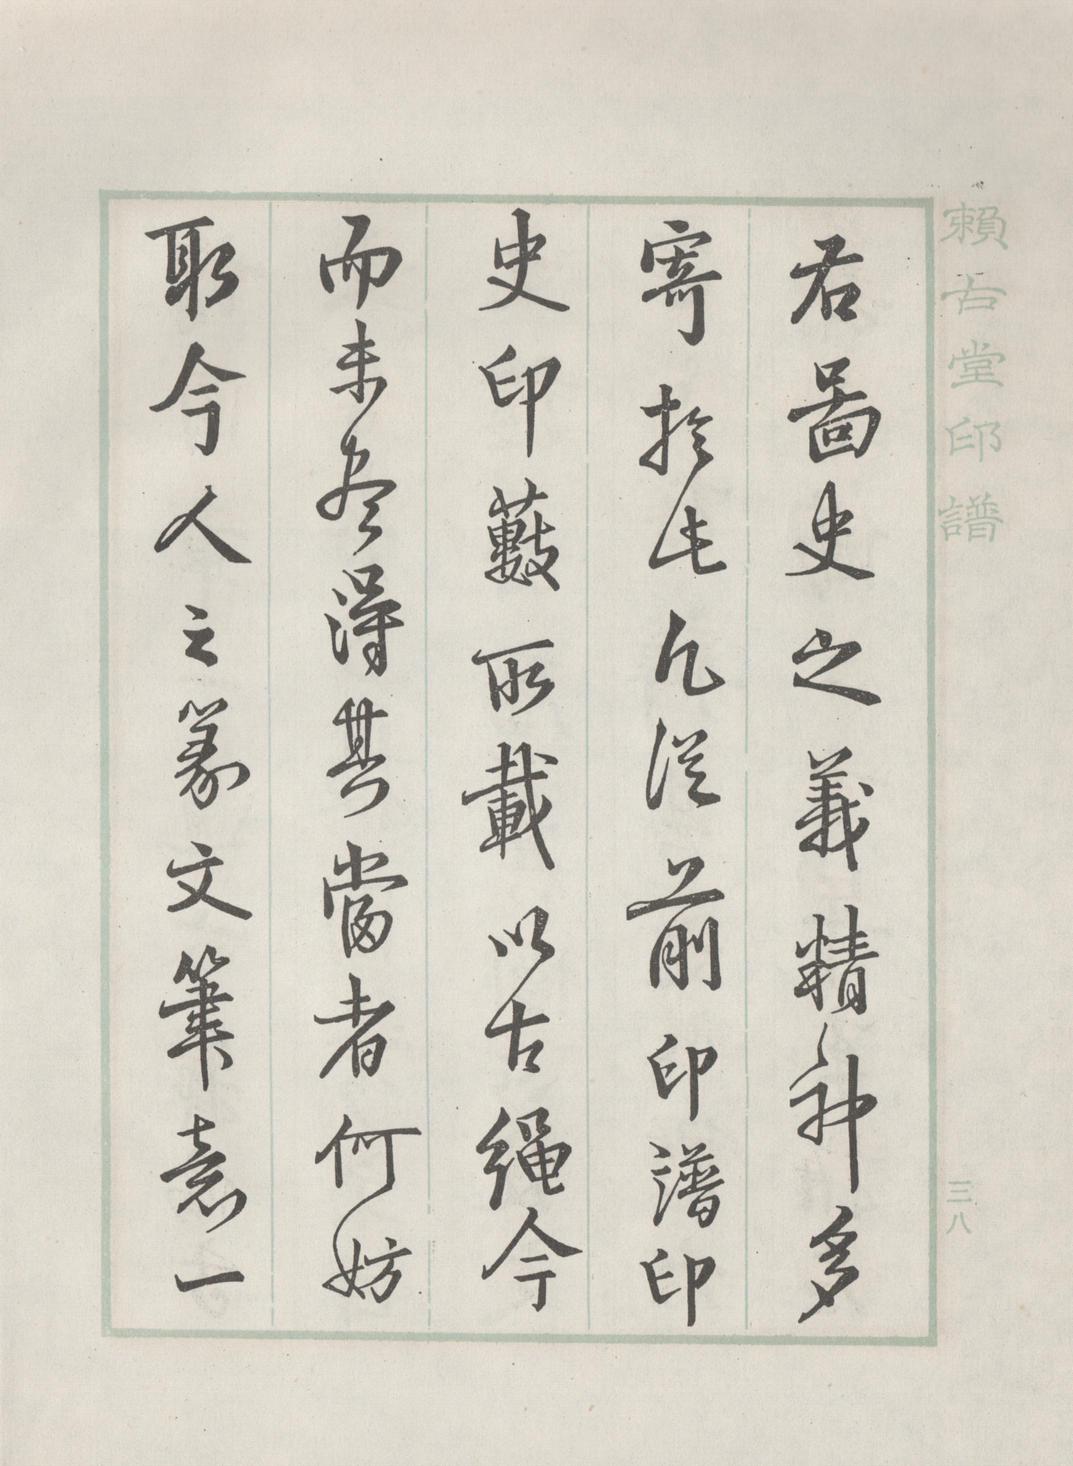 君啚史之義精神多
寄於此凡從前印譜印
史印藪所載以古繩今
而未盡得其當者何妨
取今人之篆文筆意一
賴古堂印譜
三八